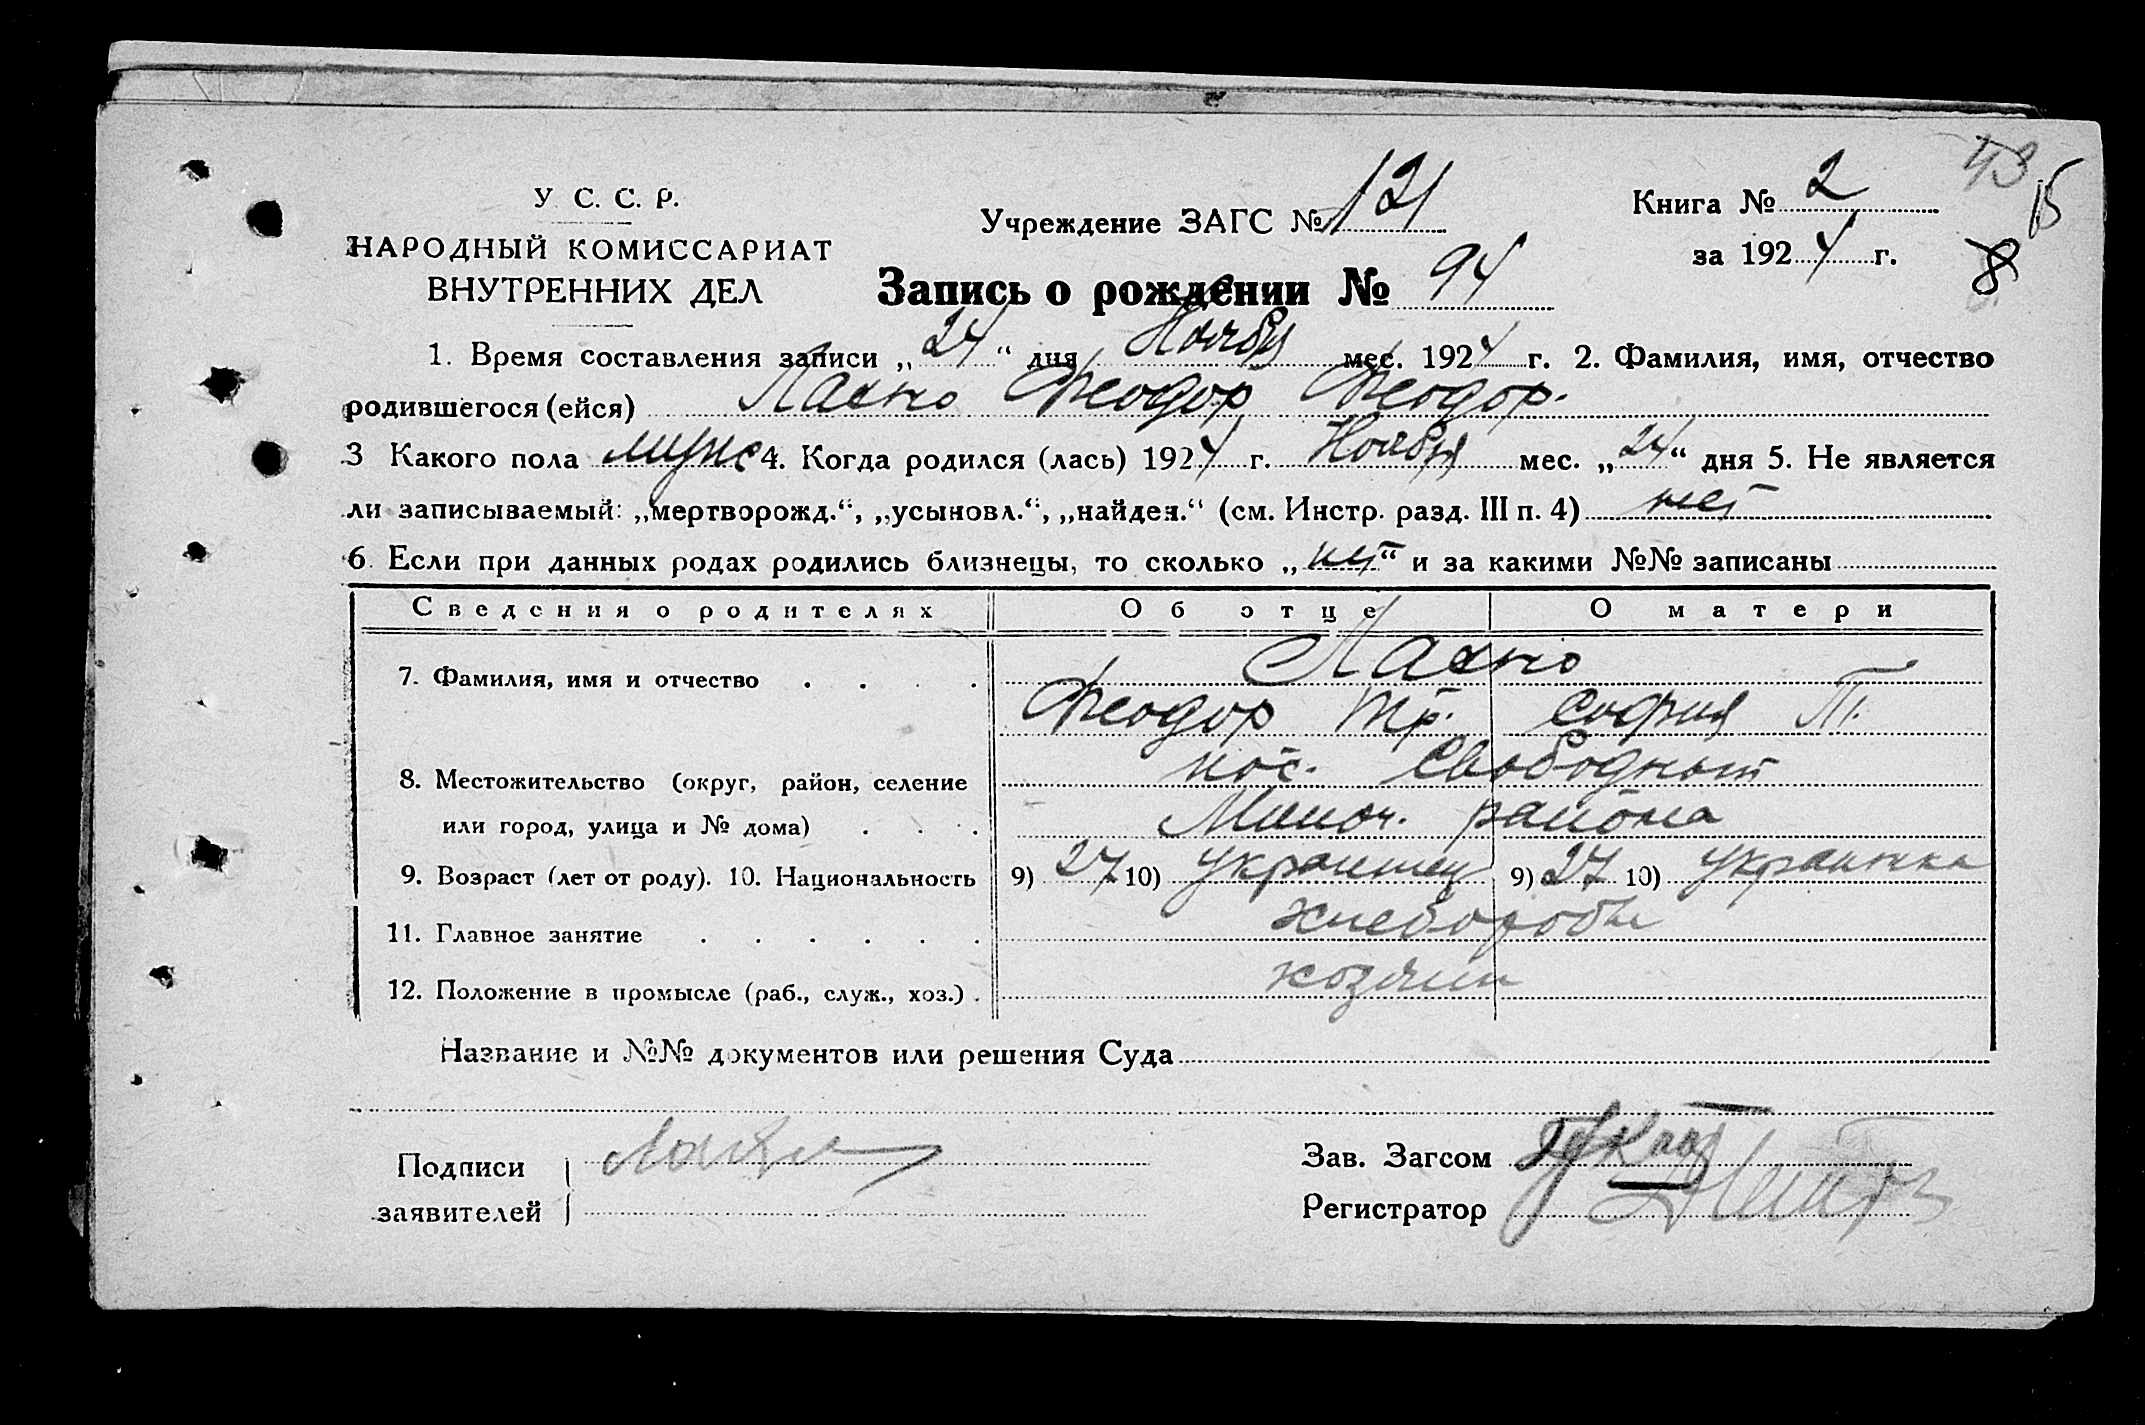 У. С. С. Р.
НАРОДНЫЙ КОМИССАРИАТ
ВНУТРЕННИХ ДЕЛ
Учреждение ЗАГС № 121
Книга № 2
за 1924 г.
43
15
8
Запись о рождении № 94
1. Время составления записи „24“ дня Ноября мес. 1924 г. 2. Фамилия, имя, отчество
родившегося (ейся) Лахно Феодор Феодор.
3 Какого пола мужс 4. Когда родился (лась) 1924 г. Ноября мес. „24“ дня 5. Не является
ли записываемый: „мертворожд.“, „усыновл.“, „найден.“ (см. Инстр. разд. III п. 4) нет
6. Если при данных родах родились близнецы, то сколько „нет“ и за какими №№ записаны
Сведения о родителях Об отце О матери
7. Фамилия, имя и отчество . . . . Лахно
Феодор Тр. София П.
8. Местожительство (округ, район, селение пос. Свободный
или город, улица и № дома) . . . района
9. Возраст (лет от роду). 10. Национальность 9) 27 10) украинец 9) 27 10) украинка
11. Главное занятие . . . . . . хлеборобы
12. Положение в промысле (раб., служ., хоз.) . хозяин
Название и №№ документов или решения Суда
Подписи Лахно
заявителей
Зав. Загсом
Регистратор